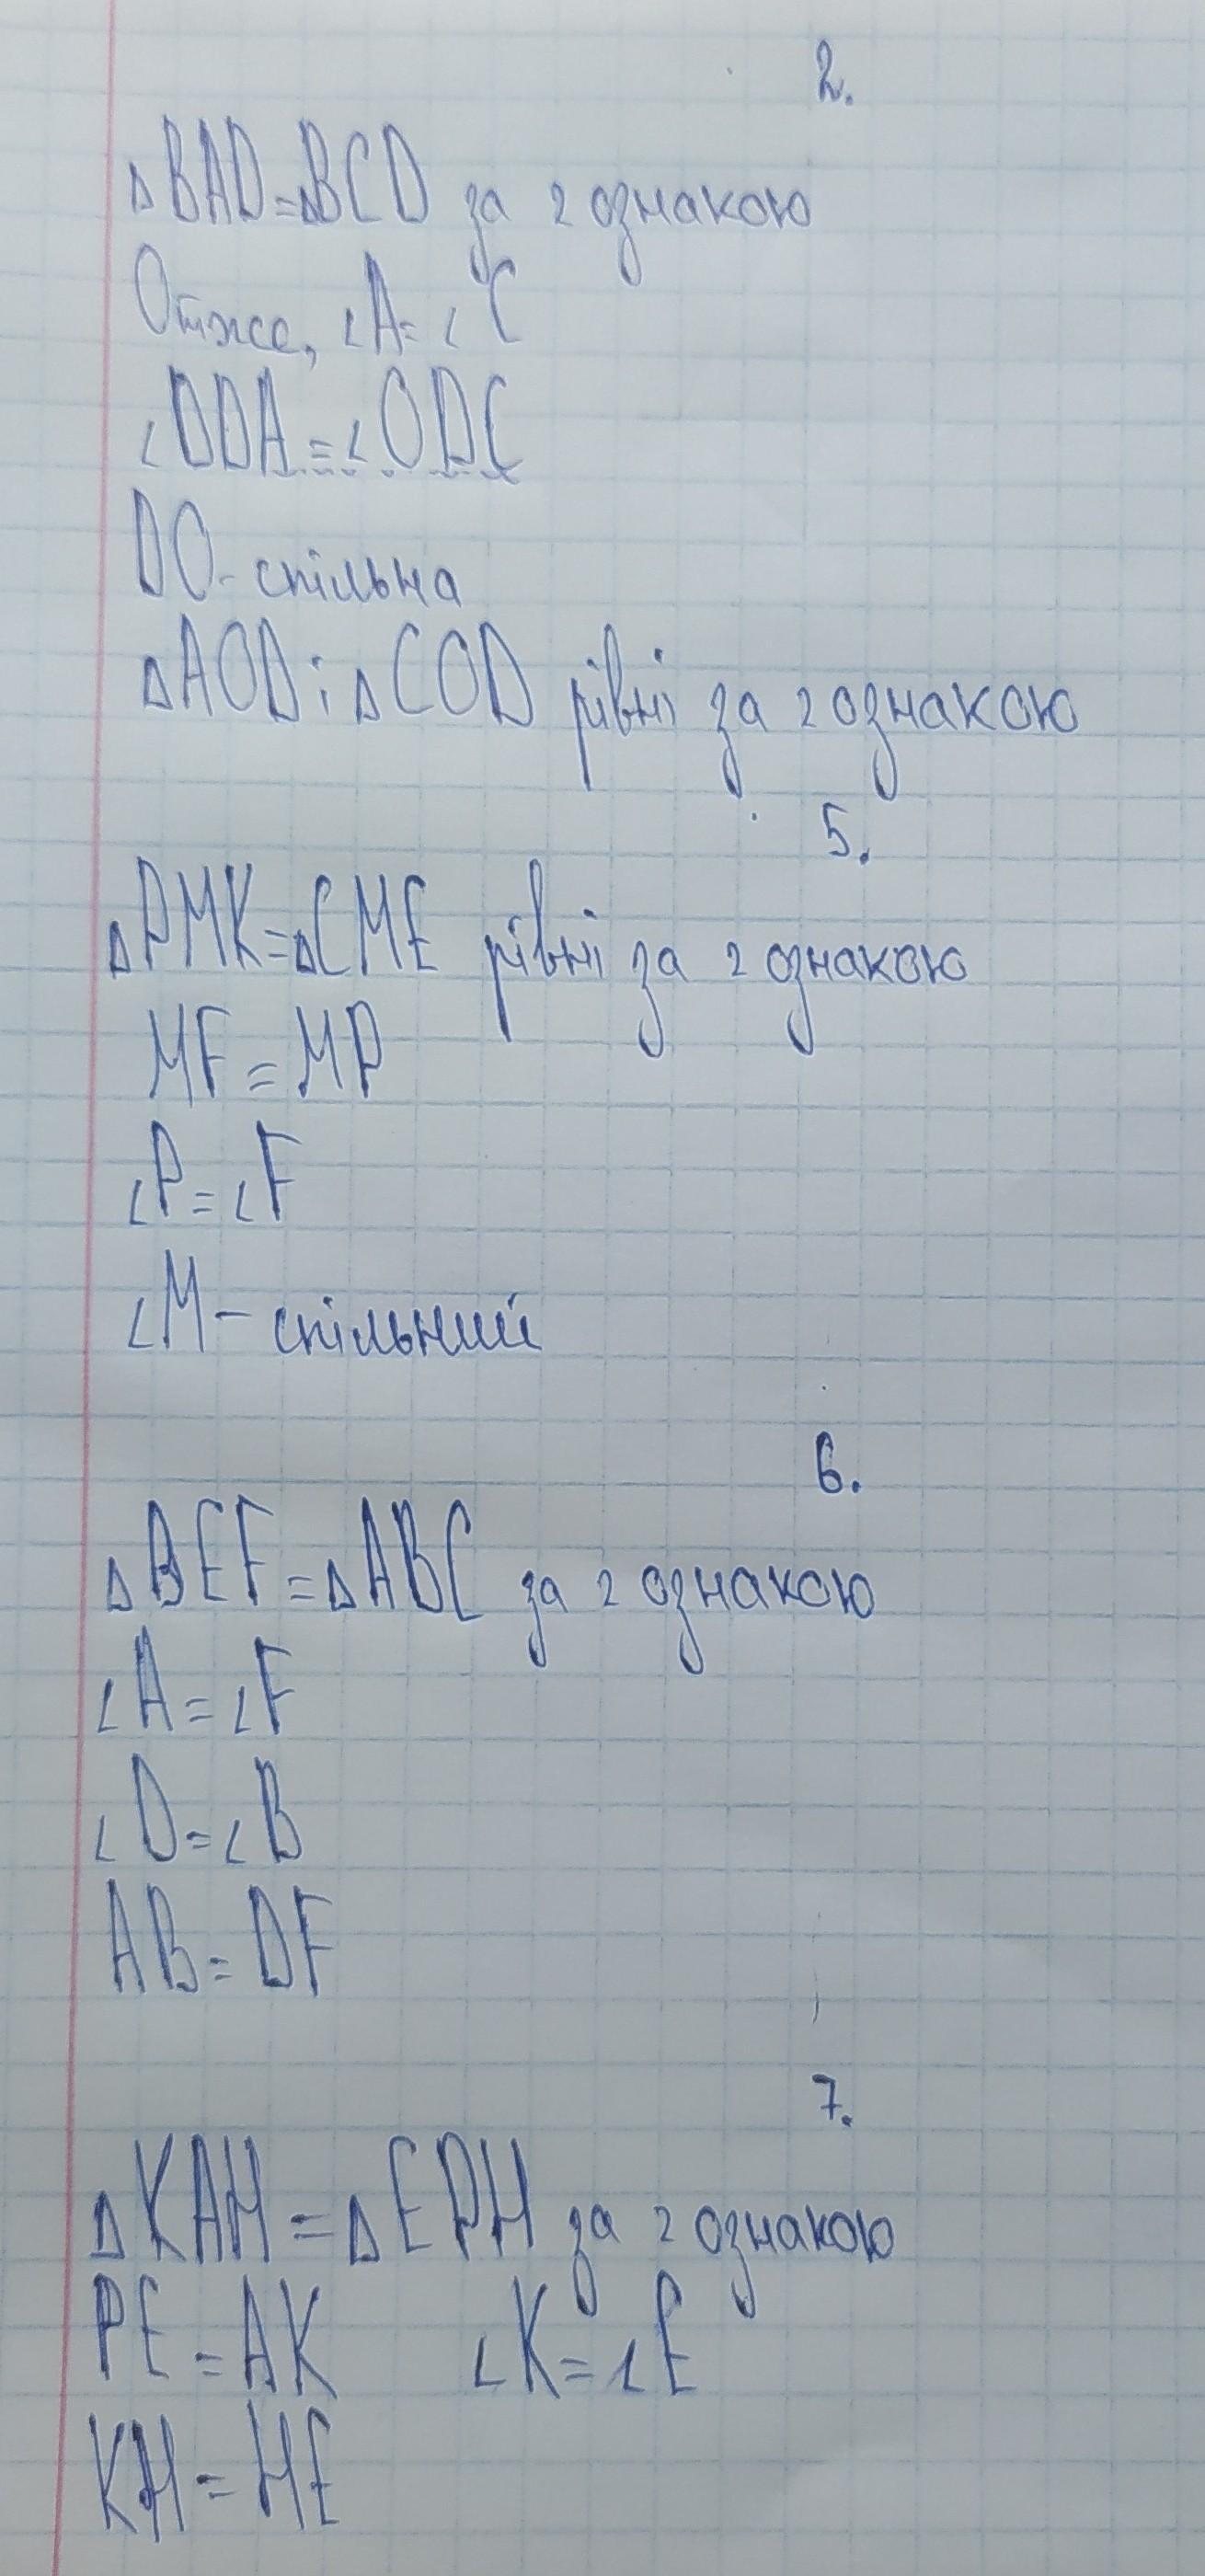 2.
△BAD=△BCD за 2 ознакою
Отже, ∠A=∠C
∠ODA=∠ODC
DO-спільна
△AOD і △COD рівні за 2 ознакою
5.
△PMK=△CME рівні за 2 ознакою
MF=MP
∠P=∠F
∠M-спільний
6.
△BEF=△ABC за 2 ознакою
∠A=∠F
∠D=∠B
AB=DF
7.
△KAH=△EPH за 2 ознакою
PE=AK ∠K=∠E
KH=HE